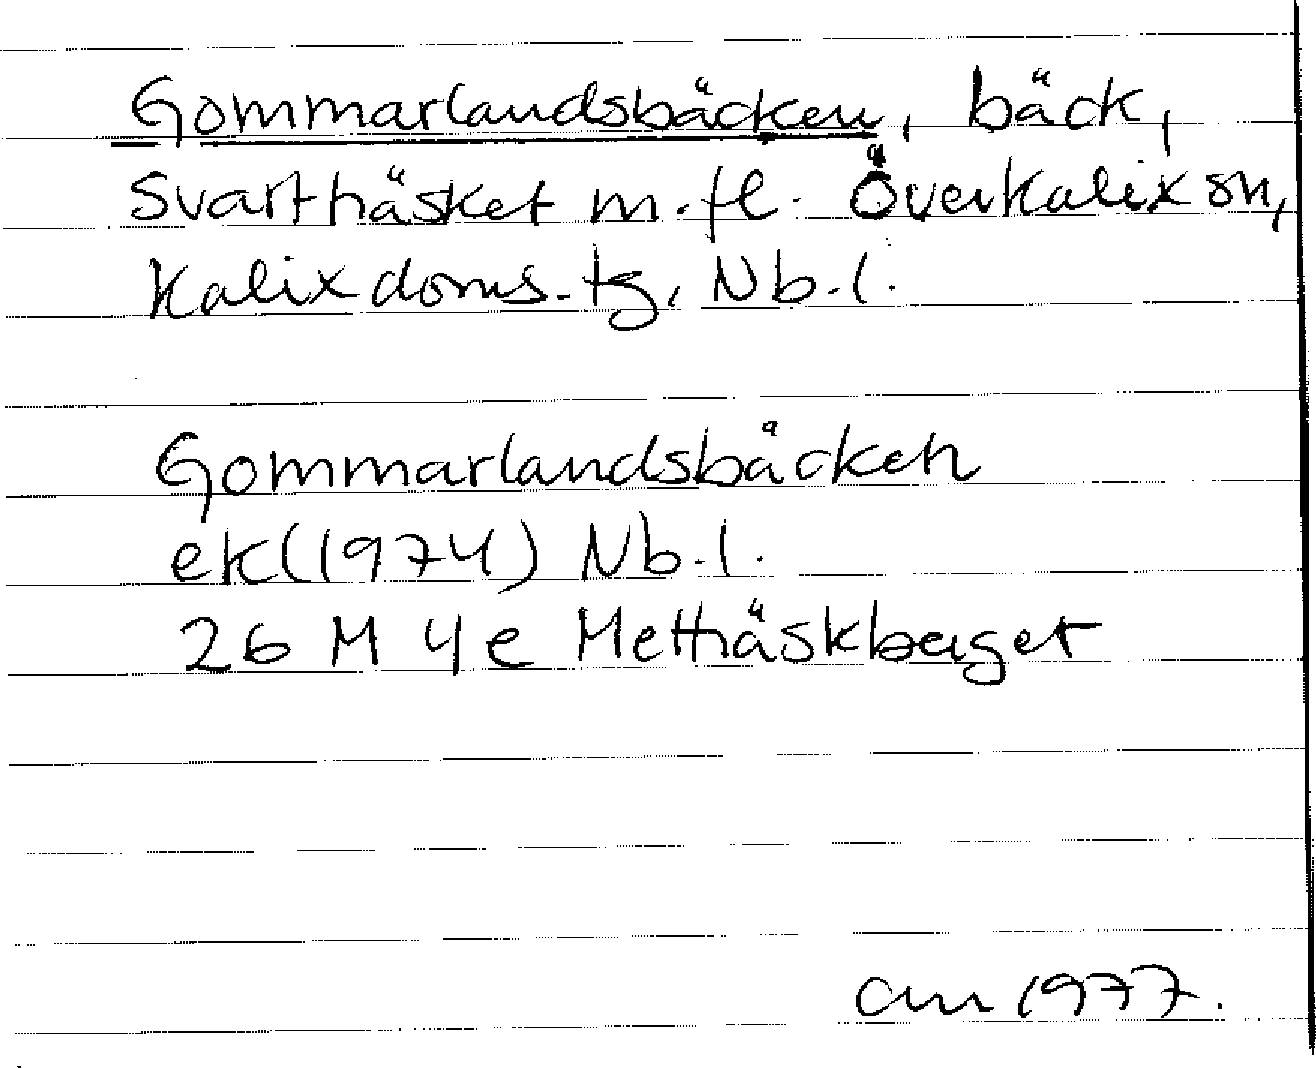 Gommarlandsbäcken, bäck,
Svartträsket m.fl. Överkalix sn,
Kalix doms.tg, Nb.l.
Gommarlandsbäcken
ek(1974) Nb.l.
26 M 4e Metträskberget
1977.